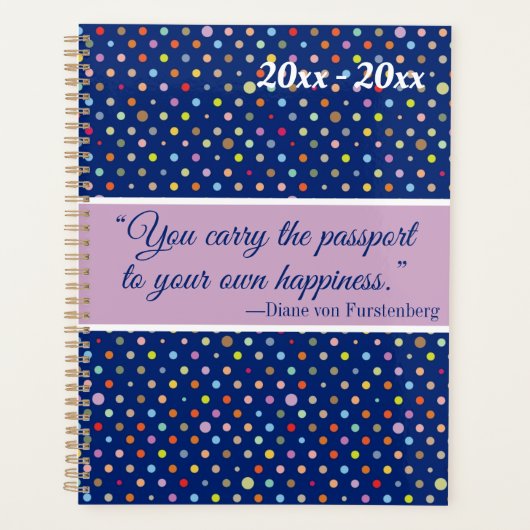 20xx - 20xx
“You carry the passport
to your own happiness.”
—Diane von Furstenberg